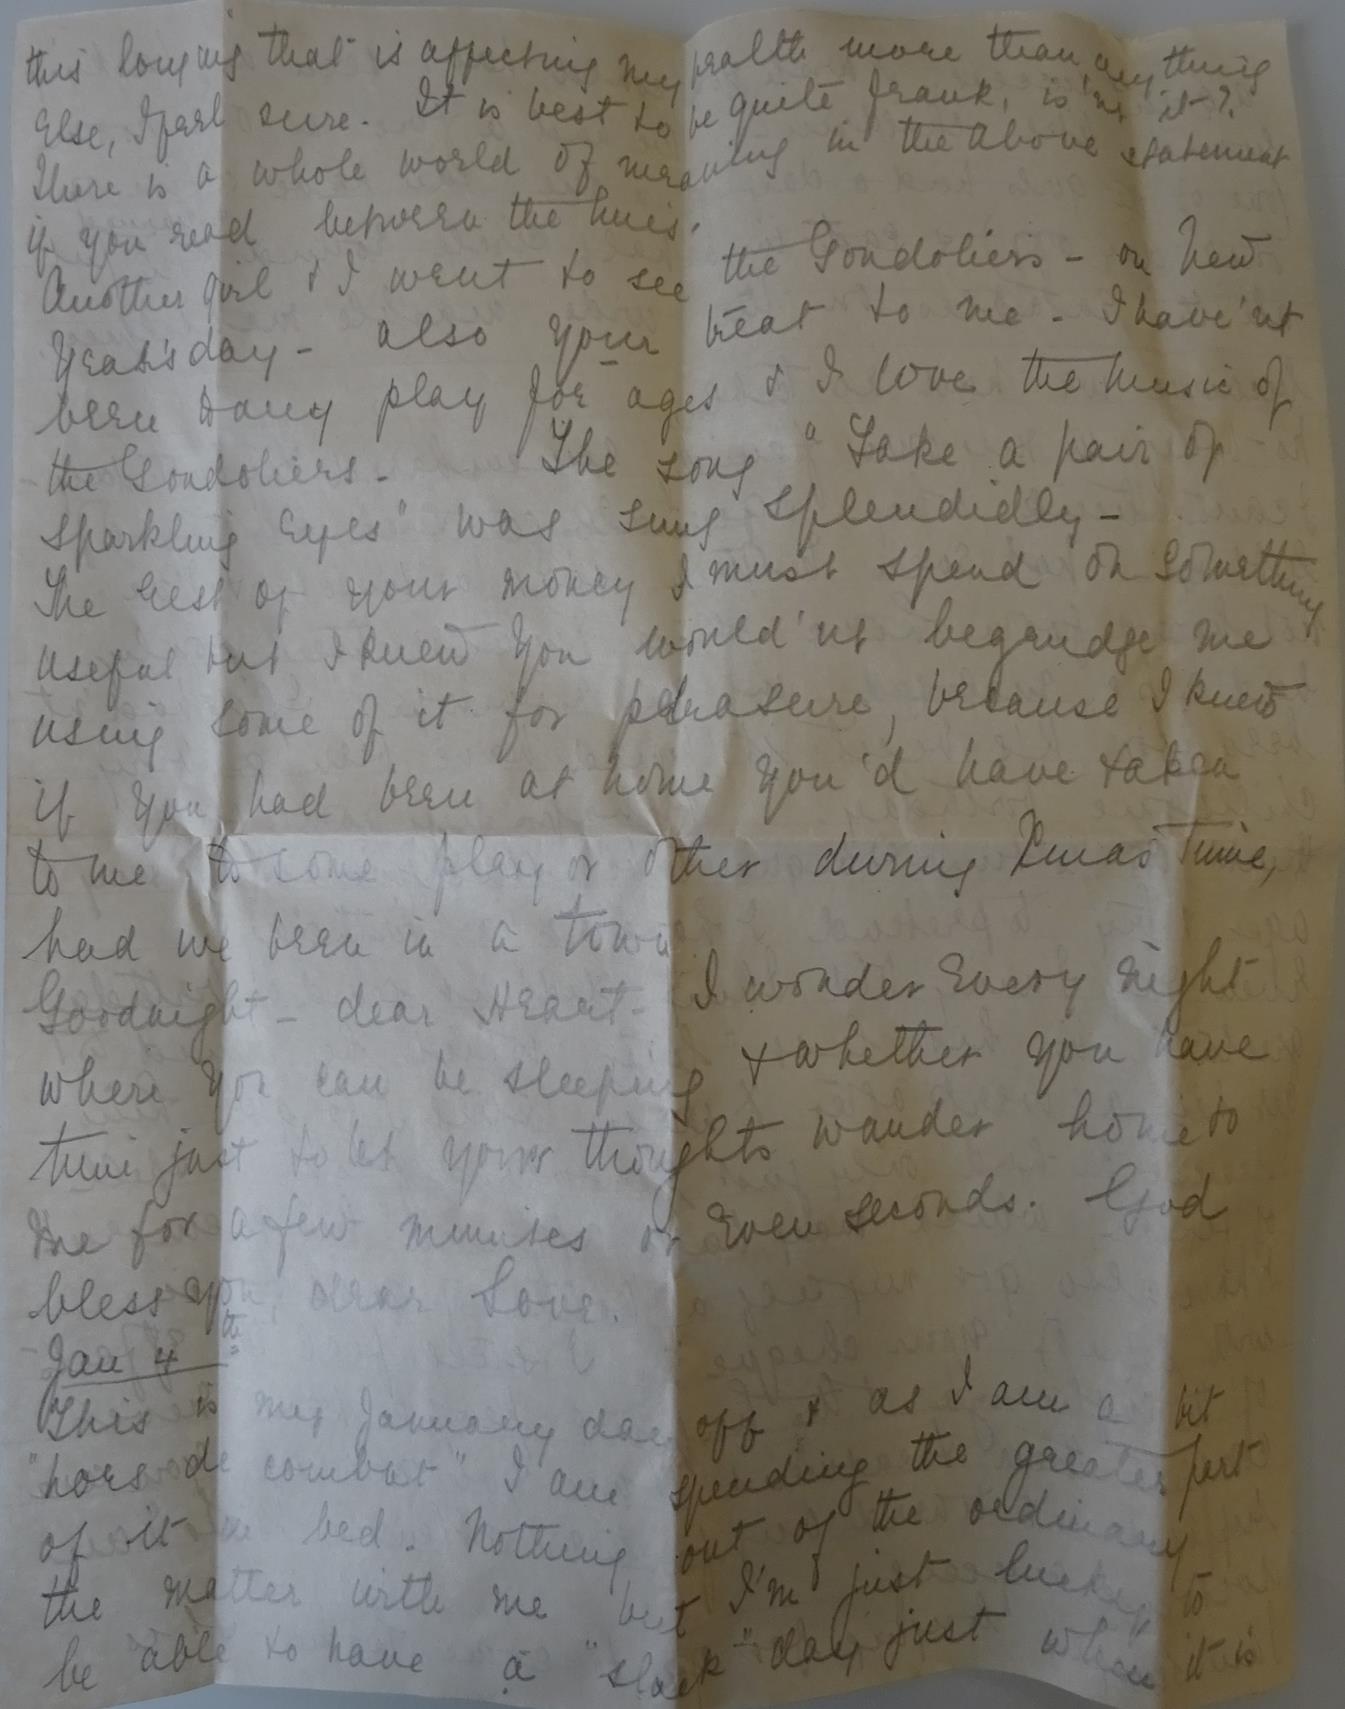 this longing that is affecting my health more than anything
Else, I feel sure. It is best to be quite frank, is'nt it?
There is a whole world of meaning in the above statement
if you read between the lines.
Another girl & I went to see the Gondoliers - on New
Year's day - also your treat to me - I have'nt
been to any play for ages & I love the music of
the Gondoliers - The song "Take a pair of
sparkling Eyes" was sung splendidly -
The rest of your money I must spend on something
useful but I knew you would'nt begrudge me
using some of it for pleasure, because I knew
if you had been at home you'd have taken
to me to some play or other during Xmas Time,
had we been in a town
Goodnight - dear Heart - I wonder Every night
where you can be sleeping & whether you have
time just to let your thoughts wander home to
me for a few minutes or Even seconds. God
bless you, dear Love.
Jan 4th
This is my January day off & as I am a bit
"hors de combat" I am spending the greater part
of it in bed. Nothing out of the ordinary
the matter with me but I'm just lucky to
be able to have a "slack" day just when it is